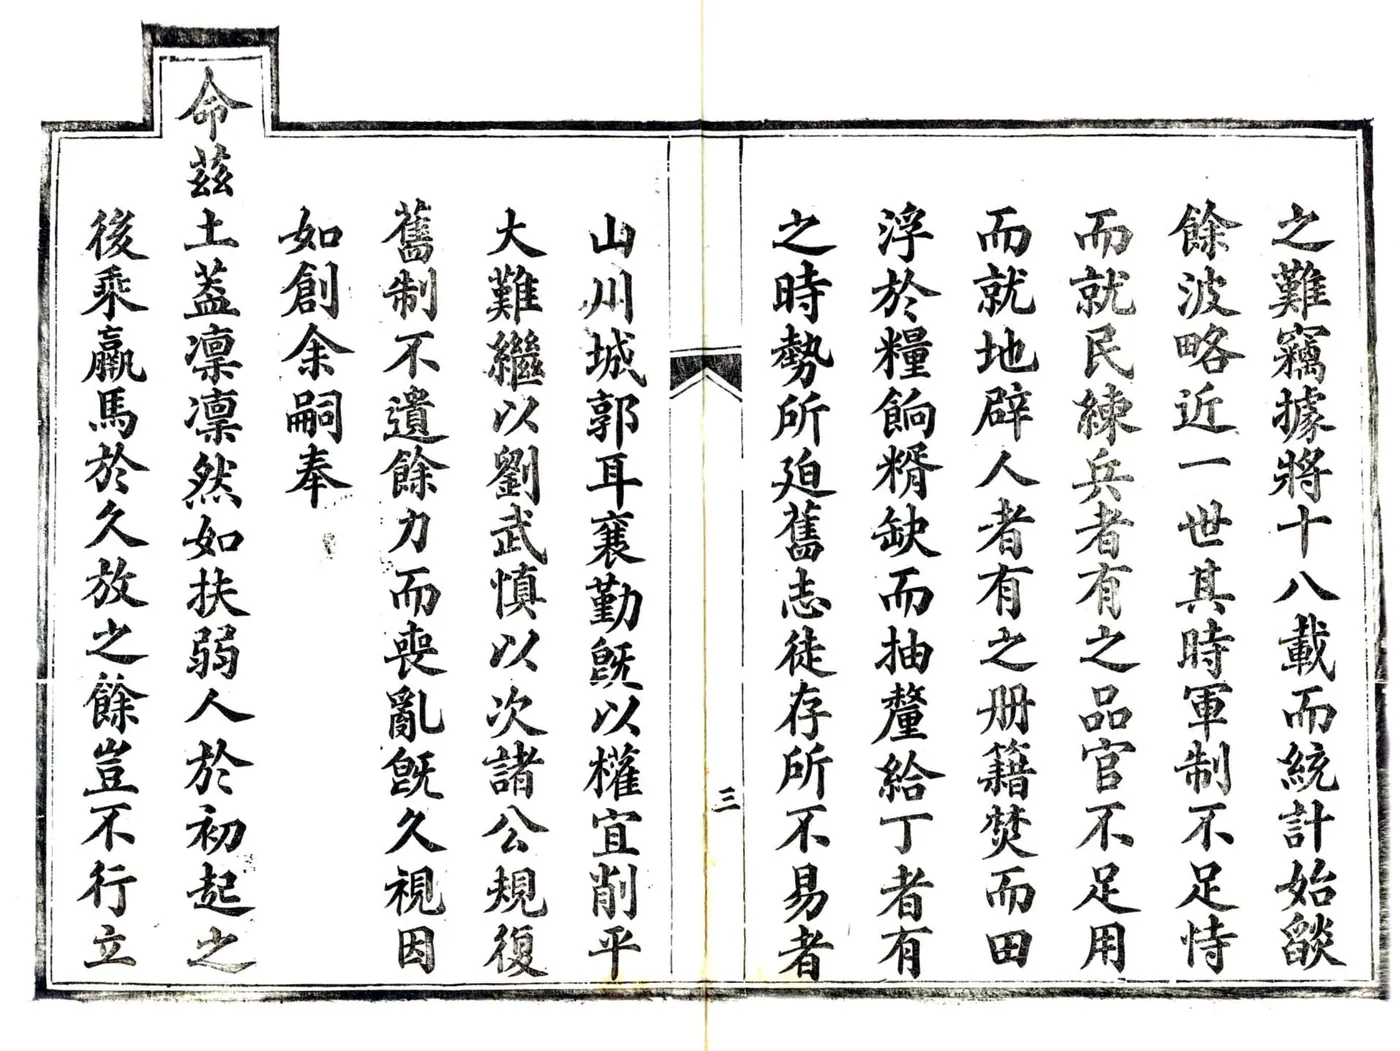 之難竊據將十八載而統計始燄
餘波略近一世其時軍制不足恃
而就民練兵者有之品官不足用
而就地辟人者有之册籍焚而田
浮於糧餉糈缺而抽釐給丁者有
之時勢所廹舊志徒存所不易者
三
山川城郭耳襄勤旣以權宜削平
大難繼以劉武慎以次諸公規復
舊制不遺餘力而喪亂旣久視因
如創余嗣奉
命茲土蓋凛凛然如扶弱人於初起之
後乘羸馬於久放之餘豈不行立